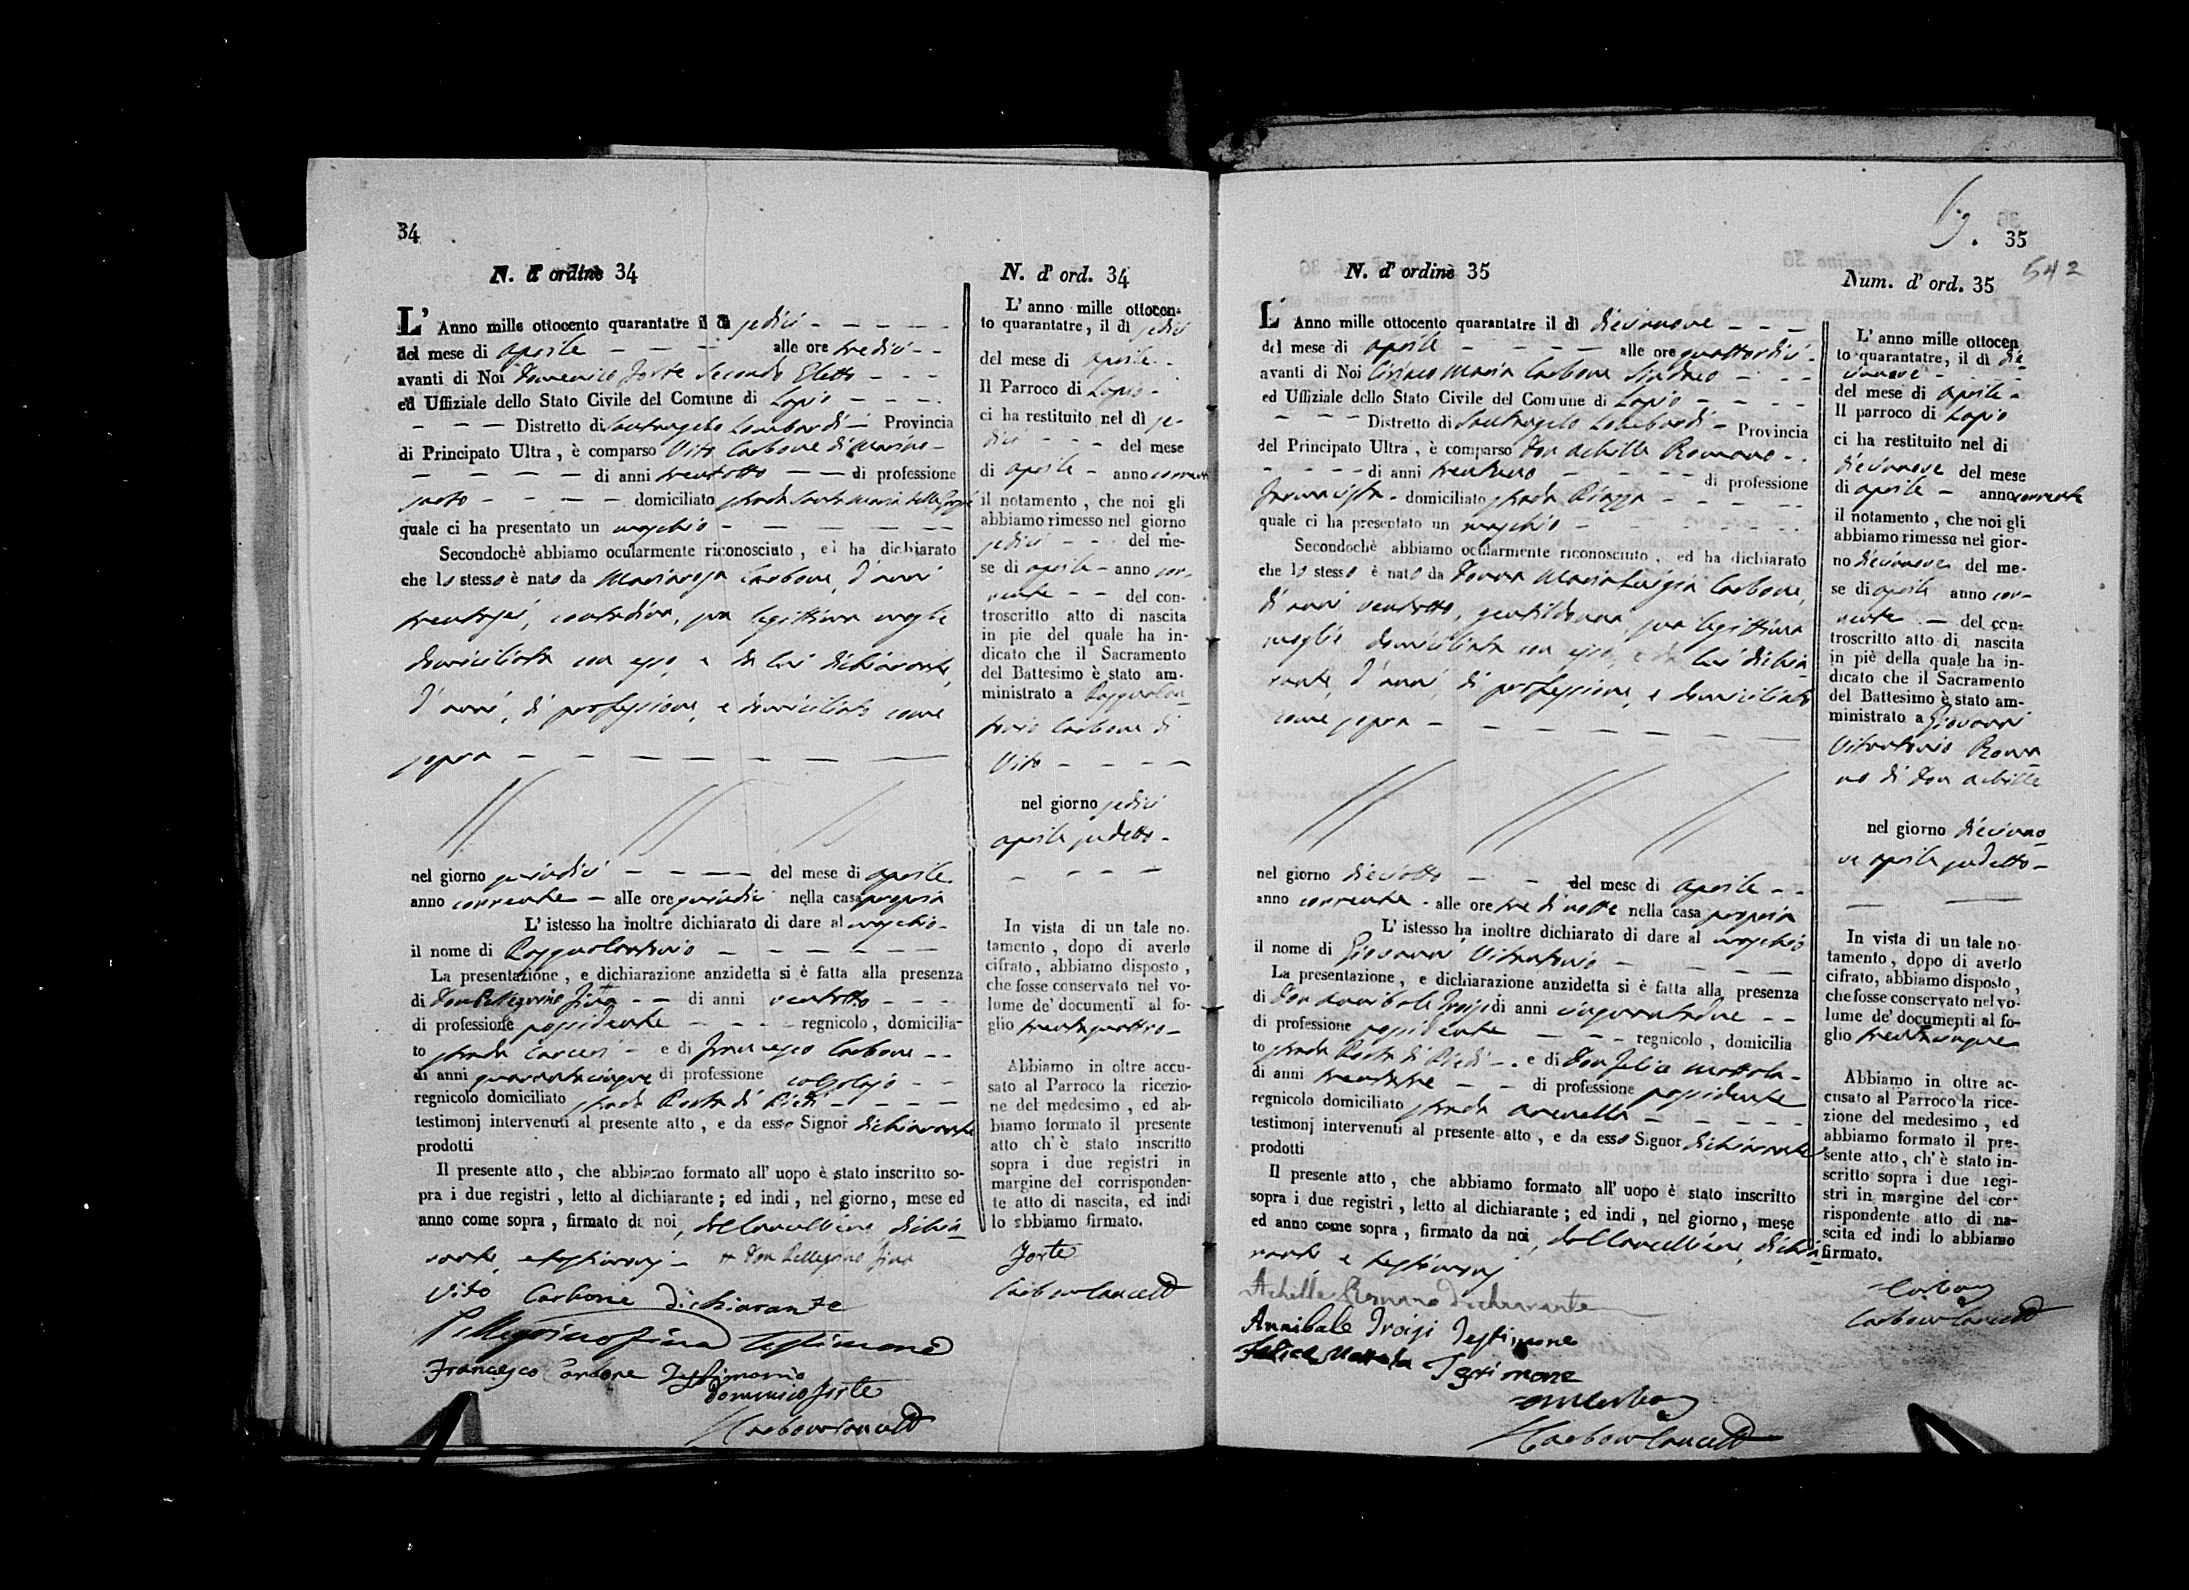 34
N. d' ordine 34
L' Anno mille ottocento quarantatre il dì sedici
del mese di aprile alle ore tredici
avanti di Noi Domenico Forte Secondo Eletto
ed Uffiziale dello Stato Civile del Comune di Lapio
Distretto di Santangelo Lombardi Provincia
di Principato Ultra, è comparso Vito Carbone di
di anni trentotto di professione
sarto domiciliato strada Santa Maria delle
quale ci ha presentato un maschio
Secondochè abbiamo ocularmente riconosciuto, ed ha dichiarato
che lo stesso è nato da Mariarosa Carbone, d'anni
trentasei, contadina, sua legittima moglie
domiciliata con esso, e da lui dichiarante,
d'anni, di professione, e domiciliato come
sopra
nel giorno quindici del mese di aprile
anno corrente alle ore quindici nella casa propria
L' istesso ha inoltre dichiarato di dare al maschio
il nome di Pasqualantonio
La presentazione, e dichiarazione anzidetta si è fatta alla presenza
di Don Pellegrino Fina di anni ventotto
di professione possidente regnicolo, domicilia-
to strada Carceri e di Francesco Carbone
di anni quarantacinque di professione calzolajo
regnicolo domiciliato strada Porta di Piedi
testimonj intervenuti al presente atto, e da esso Signor dichiarante
prodotti
Il presente atto, che abbiamo formato all' uopo è stato inscritto so-
pra i due registri, letto al dichiarante; ed indi, nel giorno, mese ed
anno come sopra, firmato da noi, dal Cancelliere, dichia-
rante, e testimonj Don Pellegrino Fina
Vito Carbone Dichiarante
Pellegrino Fina Testimone
Francesco Carbone Testimonio
Domenico Forte
Carbone Cancell
N. d' ord. 34
L' anno mille ottocen-
to quarantatre, il dì sedici
del mese di aprile
Il Parroco di Lapio
ci ha restituito nel dì se-
dici del mese
di aprile anno corrente
il notamento, che noi gli
abbiamo rimesso nel giorno
sedici del me-
se di aprile anno cor-
rente del con-
troscritto atto di nascita
in pie del quale ha in-
dicato che il Sacramento
del Battesimo è stato am-
ministrato a Pasqualan-
tonio Carbone di
Vito
nel giorno sedici
aprile sudetto
In vista di un tale no-
tamento, dopo di averlo
cifrato, abbiamo disposto,
che fosse conservato nel vo-
lume de' documenti al fo-
glio trentaquattro
Abbiamo in oltre accu-
sato al Parroco la ricezio-
ne del medesimo, ed ab-
biamo formato il presente
atto ch' è stato inscritto
sopra i due registri in
margine del corrisponden-
te atto di nascita, ed indi
lo abbiamo firmato.
Forte
Carbone Cancell
35
542
N. d' ordine 35
L' Anno mille ottocento quarantatre il dì diecinove
del mese di aprile alle ore quattordici
avanti di Noi Ciriaco Maria Carbone Sindaco
ed Uffiziale dello Stato Civile del Comune di Lapio
Distretto di Santangelo Lombardi Provincia
del Principato Ultra, è comparso Don Achille Romano
di anni di professione
Farmacista domiciliato strada Piazza
quale ci ha presentato un maschio
Secondochè abbiamo ocularmente riconosciuto, ed ha dichiarato
che lo stesso è nato da Donna Maria Luigia Carbone,
d'anni ventotto, gentildonna, sua legittima
moglie domiciliata con esso, e da lui dichia-
rante, d'anni, di professione, e domiciliato
come sopra
nel giorno dieciotto del mese di aprile
anno corrente alle ore tre di notte nella casa propria
L' istesso ha inoltre dichiarato di dare al maschio
il nome di Giovanni Vitantonio
La presentazione, e dichiarazione anzidetta si è fatta alla presenza
di Don Annibale Troisi di anni cinquantadue
di professione possidente regnicolo, domicilia
to strada Porta di Piedi e di Don Felice Mottola
di anni trentatre di professione possidente
regnicolo domiciliato strada
testimonj intervenuti al presente atto, e da esso Signor dichiarante
prodotti
Il presente atto, che abbiamo formato all' uopo è stato inscritto
sopra i due registri, letto al dichiarante; ed indi, nel giorno, mese
ed anno come sopra, firmato da noi, dal Cancelliere, dichia-
rante, e testimonj
Achille Romano Dichiarante
Annibale Troisi Testimone
Felice Mottola Testimone
Carbone Cancell
Num. d' ord. 35
L' anno mille ottocen
to quarantatre, il dì die-
cinove
del mese di aprile
Il parroco di Lapio
ci ha restituito nel di
diecinove del mese
di aprile anno corrente
il notamento, che noi gli
abbiamo rimesso nel gior-
no diecinove del me-
se di aprile anno cor-
rente del con-
troscritto atto di nascita
in piè della quale ha in-
dicato che il Sacramento
del Battesimo è stato am-
ministrato a Giovanni
Vitantonio Roma-
no di Don Achille
nel giorno diecino-
ve aprile sudetto
In vista di un tale no-
tamento, dopo di averlo
cifrato, abbiamo disposto,
che fosse conservato nel vo-
lume de' documenti al fo-
glio trentacinque
Abbiamo in oltre ac-
cusato al Parroco la rice-
zione del medesimo, ed
abbiamo formato il pre-
sente atto, ch' è stato in-
scritto sopra i due regi-
stri in margine del cor-
rispondente atto di na-
scita ed indi lo abbiamo
firmato.
Carbone
Carbone Cancell